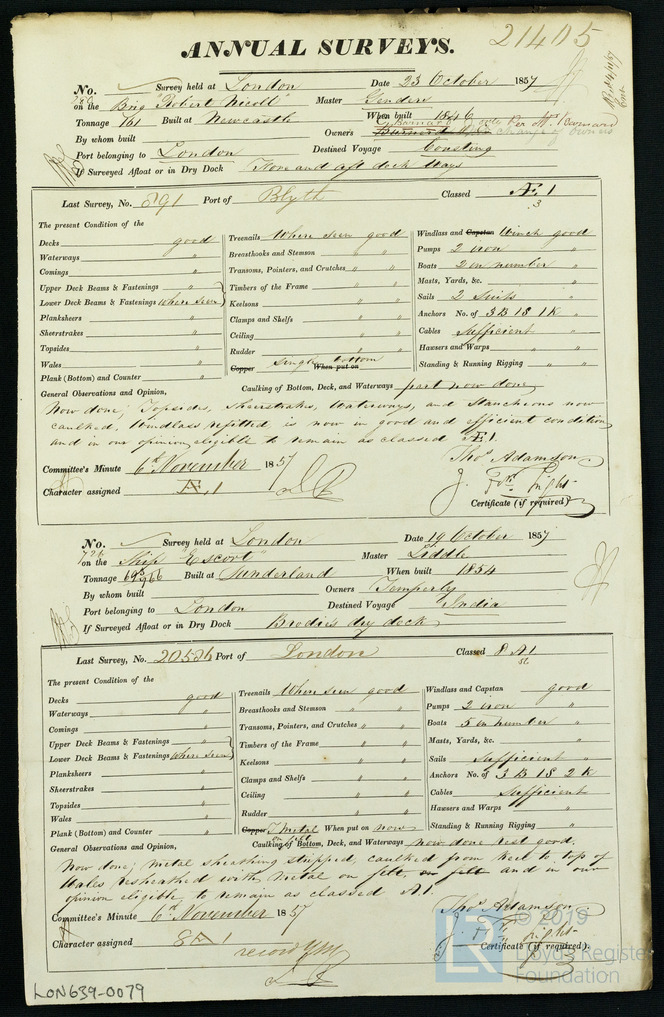 21405
ANNUAL SURVEYS.
No. Survey held at London Date 23 October 1857
on the Brig "Robert Nicoll" Master Genders
Tonnage 161 Built at Newcastle When built 1846
By whom built Owners change of Owners
Port belonging to London Destined Voyage Coasting
If Surveyed Afloat or in Dry Dock Fore and aft dock Ways
Last Survey, No. 891 Port of Blyth Classed Æ 1
3
The present Condition of the
Decks good
Waterways "
Comings "
Upper Deck Beams & Fastenings "
Lower Deck Beams & Fastenings Where seen
Planksheers "
Sheerstrakes "
Topsides "
Wales "
Plank (Bottom) and Counter "
Treenails Where seen good
Breasthooks and Stemson " "
Transoms, Pointers, and Crutches " "
Timbers of the Frame " "
Keelsons " "
Clamps and Shelfs " "
Ceiling " "
Rudder " "
Copper Single bottom When put on
Windlass and Capstan Winch good
Pumps 2 iron "
Boats 2 in number "
Masts, Yards, &c. "
Sails 2 Suits "
Anchors No. of 3 B 1 S 1 K "
Cables Sufficient "
Hawsers and Warps "
Standing & Running Rigging "
General Observations and Opinion, Caulking of Bottom, Deck, and Waterways part now done
Now done; Topsides, Sheerstrakes, Waterways, and Stancheons now
caulked, Windlass refitted, is now in good and efficient condition
and in our opinion eligible to remain as classed Æ 1.
Thos Adamson
Committee's Minute 6th November 1857
Character assigned Æ 1
Certificate (if required)
No. Survey held at London Date 19 October 1857
on the Ship "Escort" Master Liddle
Tonnage Built at Sunderland When built 1854
By whom built Owners Temperly
Port belonging to London Destined Voyage India
If Surveyed Afloat or in Dry Dock Brodies dry dock
Last Survey, No. 20526 Port of London Classed 8 A1
The present Condition of the
Decks good
Waterways "
Comings "
Upper Deck Beams & Fastenings "
Lower Deck Beams & Fastenings Where seen
Planksheers "
Sheerstrakes "
Topsides "
Wales "
Plank (Bottom) and Counter "
Treenails Where seen good
Breasthooks and Stemson " "
Transoms, Pointers, and Crutches " "
Timbers of the Frame " "
Keelsons " "
Clamps and Shelfs " "
Ceiling " "
Rudder " "
Copper Y Metal When put on now
on felt
Windlass and Capstan good
Pumps 2 iron "
Boats 5 in number "
Masts, Yards, &c. "
Sails Sufficient "
Anchors No. of 3 B 1 S 2 K
Cables Sufficient
Hawsers and Warps "
Standing & Running Rigging "
General Observations and Opinion, Caulking of Bottom, Deck, and Waterways now done rest good.
Now done; metal sheathing stripped, caulked from keel to top of
Wales resheathed with metal on felt, on felt and in our
opinion eligible to remain as classed A1.
Thos Adamson
Committee's Minute 6th November 1857
Character assigned 8 A 1
Certificate (if required).
record YM
LON639-0079
© 2019
Lloyd's Register
Foundation
LR